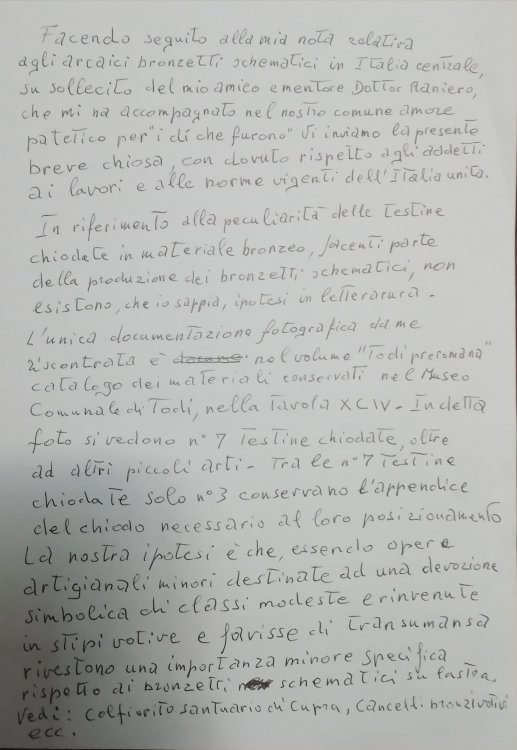 Facendo seguito alla mia nota relativa
agli arcaici bronzetti schematici in Italia centrale,
su sollecito del mio amico e mentore Dottor Raniero,
che mi ha accompagnato nel nostro comune amore
patetico per "i dì che furono" Vi inviamo la presente
breve chiosa, con dovuto rispetto agli addetti
ai lavori e alle norme vigenti dell'Italia unita.
In riferimento alla peculiarità delle testine
chiodate in materiale bronzeo, facenti parte
della produzione dei bronzetti schematici, non
esistono, che io sappia, ipotesi in letterarura.
L'unica documentazione fotografica da me
riscontrata è nel volume "Todi preromana"
catalogo dei materiali conservati nel Museo
Comunale di Todi, nella Tavola XCIV - In detta
foto si vedono n° 7 Testine chiodate, oltre
ad altri piccoli arti - Tra le n° 7 Testine
chiodate solo n° 3 conservano l'appendice
del chiodo necessario al loro posizionamento
La nostra ipotesi è che, essendo opere
artigianali minori destinate ad una devozione
simbolica di classi modeste e rinvenute
in stipi votive e favisse di transumansa
rivestono una importanza minore specifica
rispetto ai bronzetti schematici su lastra.
Vedi: Colfiorito santuario di Cupra, Cancelli bronzi votivi
ecc.